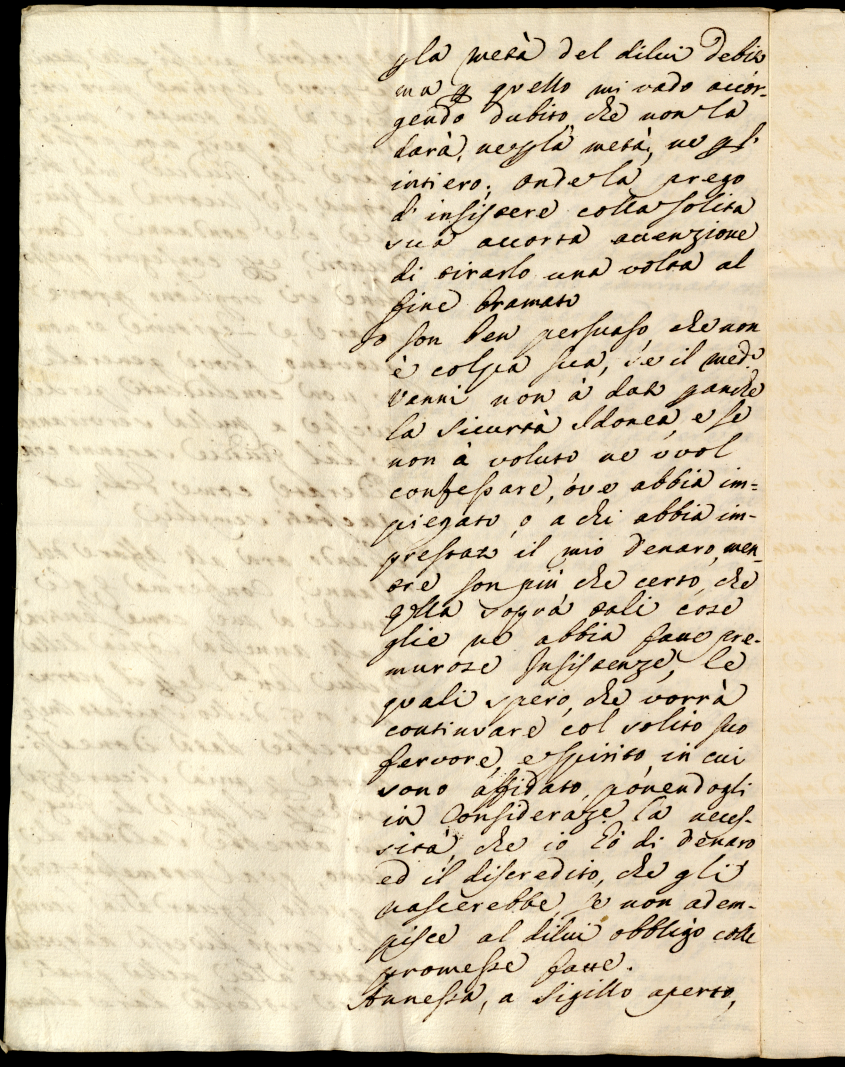 p la metà del dilui debito
ma p quello mi vado accor-
gendo dubito che non la
darà, ne p la metà, ne p l'
intiero; onde la prego
d'insistere colla solita
sua accorta attenzione
di tirarlo una volta al
fine bramato
Io son ben persuaso che non
è colpa sua, se il med.o
Vanni non à dato p anche
la sicurtà Idonea, e se
non à voluto ne vuol
confessare, ove abbia im=
piegato, o a chi abbia im-
prestato il mio denaro, men-
tre son più che certo, che
ella sopra tali cose
glie ne abbia fatte pre-
murose Insistenze, le
quali spero, che vorrà
continuare col solito suo
fervore, e spirito, in cui
sono affidato, ponendogli
in Consideraz.e la neces-
sità che io hò di denaro
ed il discredito, che gli
nascerebbe, se non adem-
pisce al dilui obbligo colle
promesse fatte.
Annessa, a Sigillo aperto,